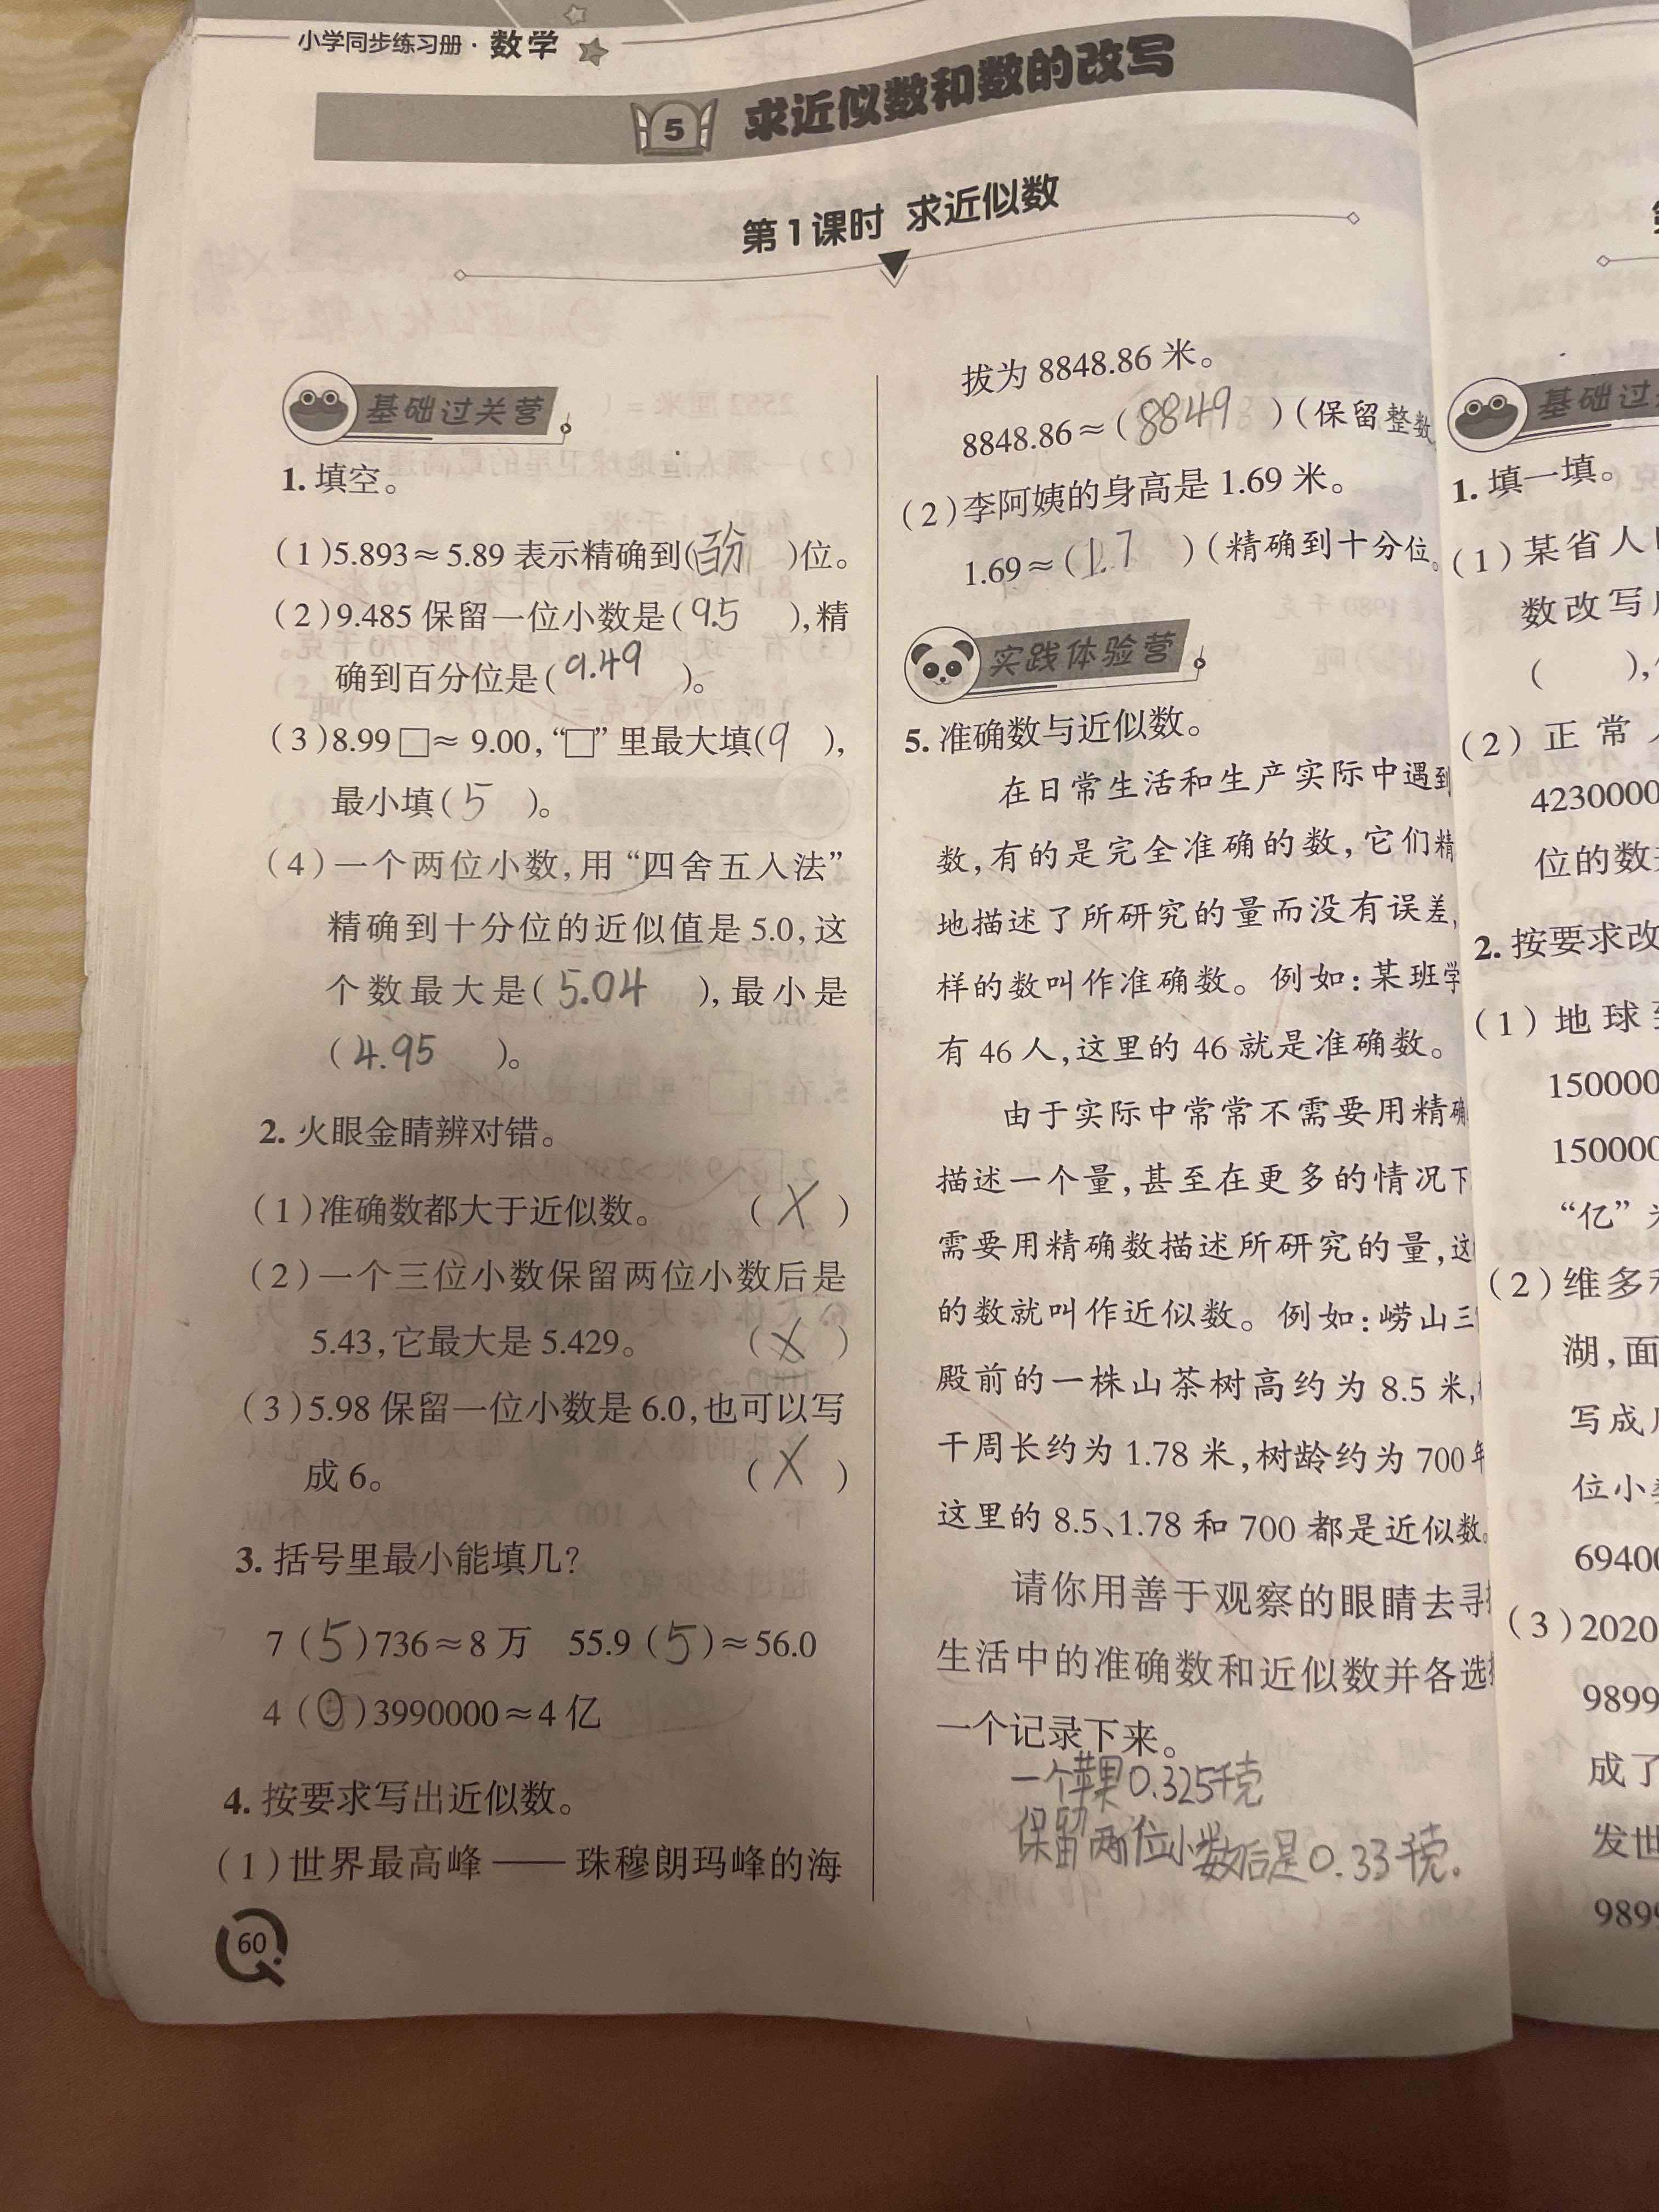 小学同步练习册·数学
5 求近似数和数的改写
第1课时 求近似数
基础过关营
1. 填空。
(1)5.893≈5.89 表示精确到(百分)位。
(2)9.485 保留一位小数是(9.5),精
确到百分位是(9.49)。
(3)8.99□≈9.00,“□”里最大填(9),
最小填(5)。
(4)一个两位小数,用“四舍五入法”
精确到十分位的近似值是 5.0,这
个数最大是(5.04),最小是
(4.95)。
2. 火眼金睛辨对错。
(1)准确数都大于近似数。 (X)
(2)一个三位小数保留两位小数后是
5.43,它最大是 5.429。 (X)
(3)5.98 保留一位小数是 6.0,也可以写
成 6。 (X)
3. 括号里最小能填几?
7(5)736≈8万 55.9(5)≈56.0
4(0)3990000≈4亿
4. 按要求写出近似数。
(1)世界最高峰——珠穆朗玛峰的海
60
拔为 8848.86 米。
8848.86≈(8849)(保留整数
(2)李阿姨的身高是 1.69 米。
1.69≈(1.7)(精确到十分位
实践体验营
5. 准确数与近似数。
在日常生活和生产实际中遇到
数,有的是完全准确的数,它们精
地描述了所研究的量而没有误差,
样的数叫作准确数。例如:某班学
有 46 人,这里的 46 就是准确数。
由于实际中常常不需要用精确
描述一个量,甚至在更多的情况下
需要用精确数描述所研究的量,这
的数就叫作近似数。例如:崂山三
殿前的一株山茶树高约为 8.5 米,
干周长约为 1.78 米,树龄约为 700年
这里的 8.5、1.78 和 700 都是近似数。
请你用善于观察的眼睛去寻
生活中的准确数和近似数并各选
一个记录下来。
一个苹果0.325千克
保留两位小数后是0.33千克.
基础过
1. 填一填。
(1)某省人
数改写
( ),
(2)正常
4230000
位的数
2. 按要求改
(1)地球
150000
150000
“亿”
(2)维多
湖,面
写成
位小
6940
(3)2020
9899
成了
发世
989